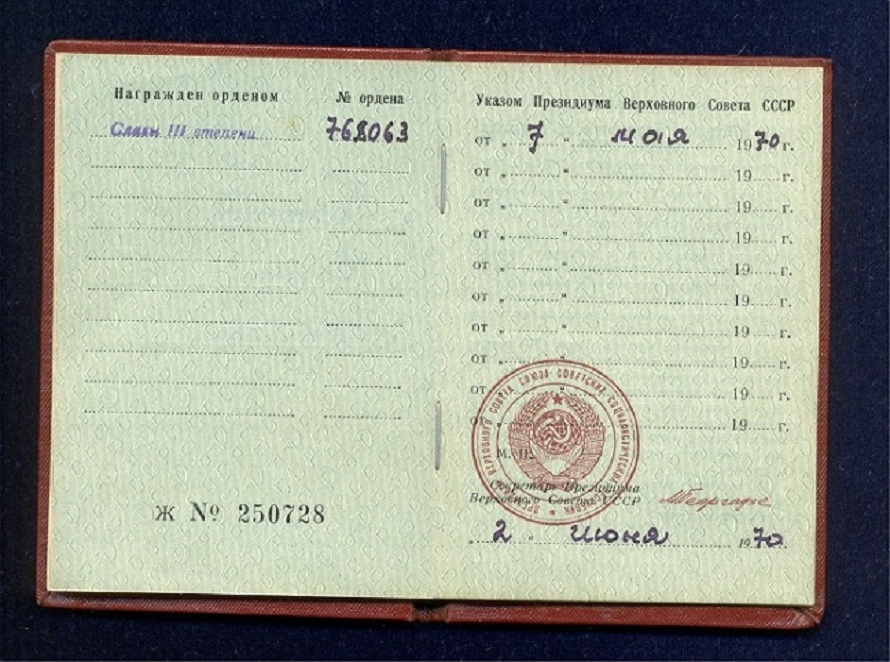 Награжден орденом № ордена
Славы III степени 768063
Ж № 250728
Указом Президиума Верховного Совета СССР
от „ 7 “ мая 1970 г.
от „ “ 19 г.
от „ “ 19 г.
от „ “ 19 г.
от „ “ 19 г.
от „ “ 19 г.
от „ “ 19 г.
от „ “ 19 г.
от „ “ 19 г.
от „ “ 19 г.
М. П.
Секретарь Президиума
Верховного Совета СССР
„ 2 “ июня 1970
ВЕРХОВНОГО СОВЕТА СОЮЗА СОВЕТСКИХ СОЦИАЛИСТИЧЕСКИХ